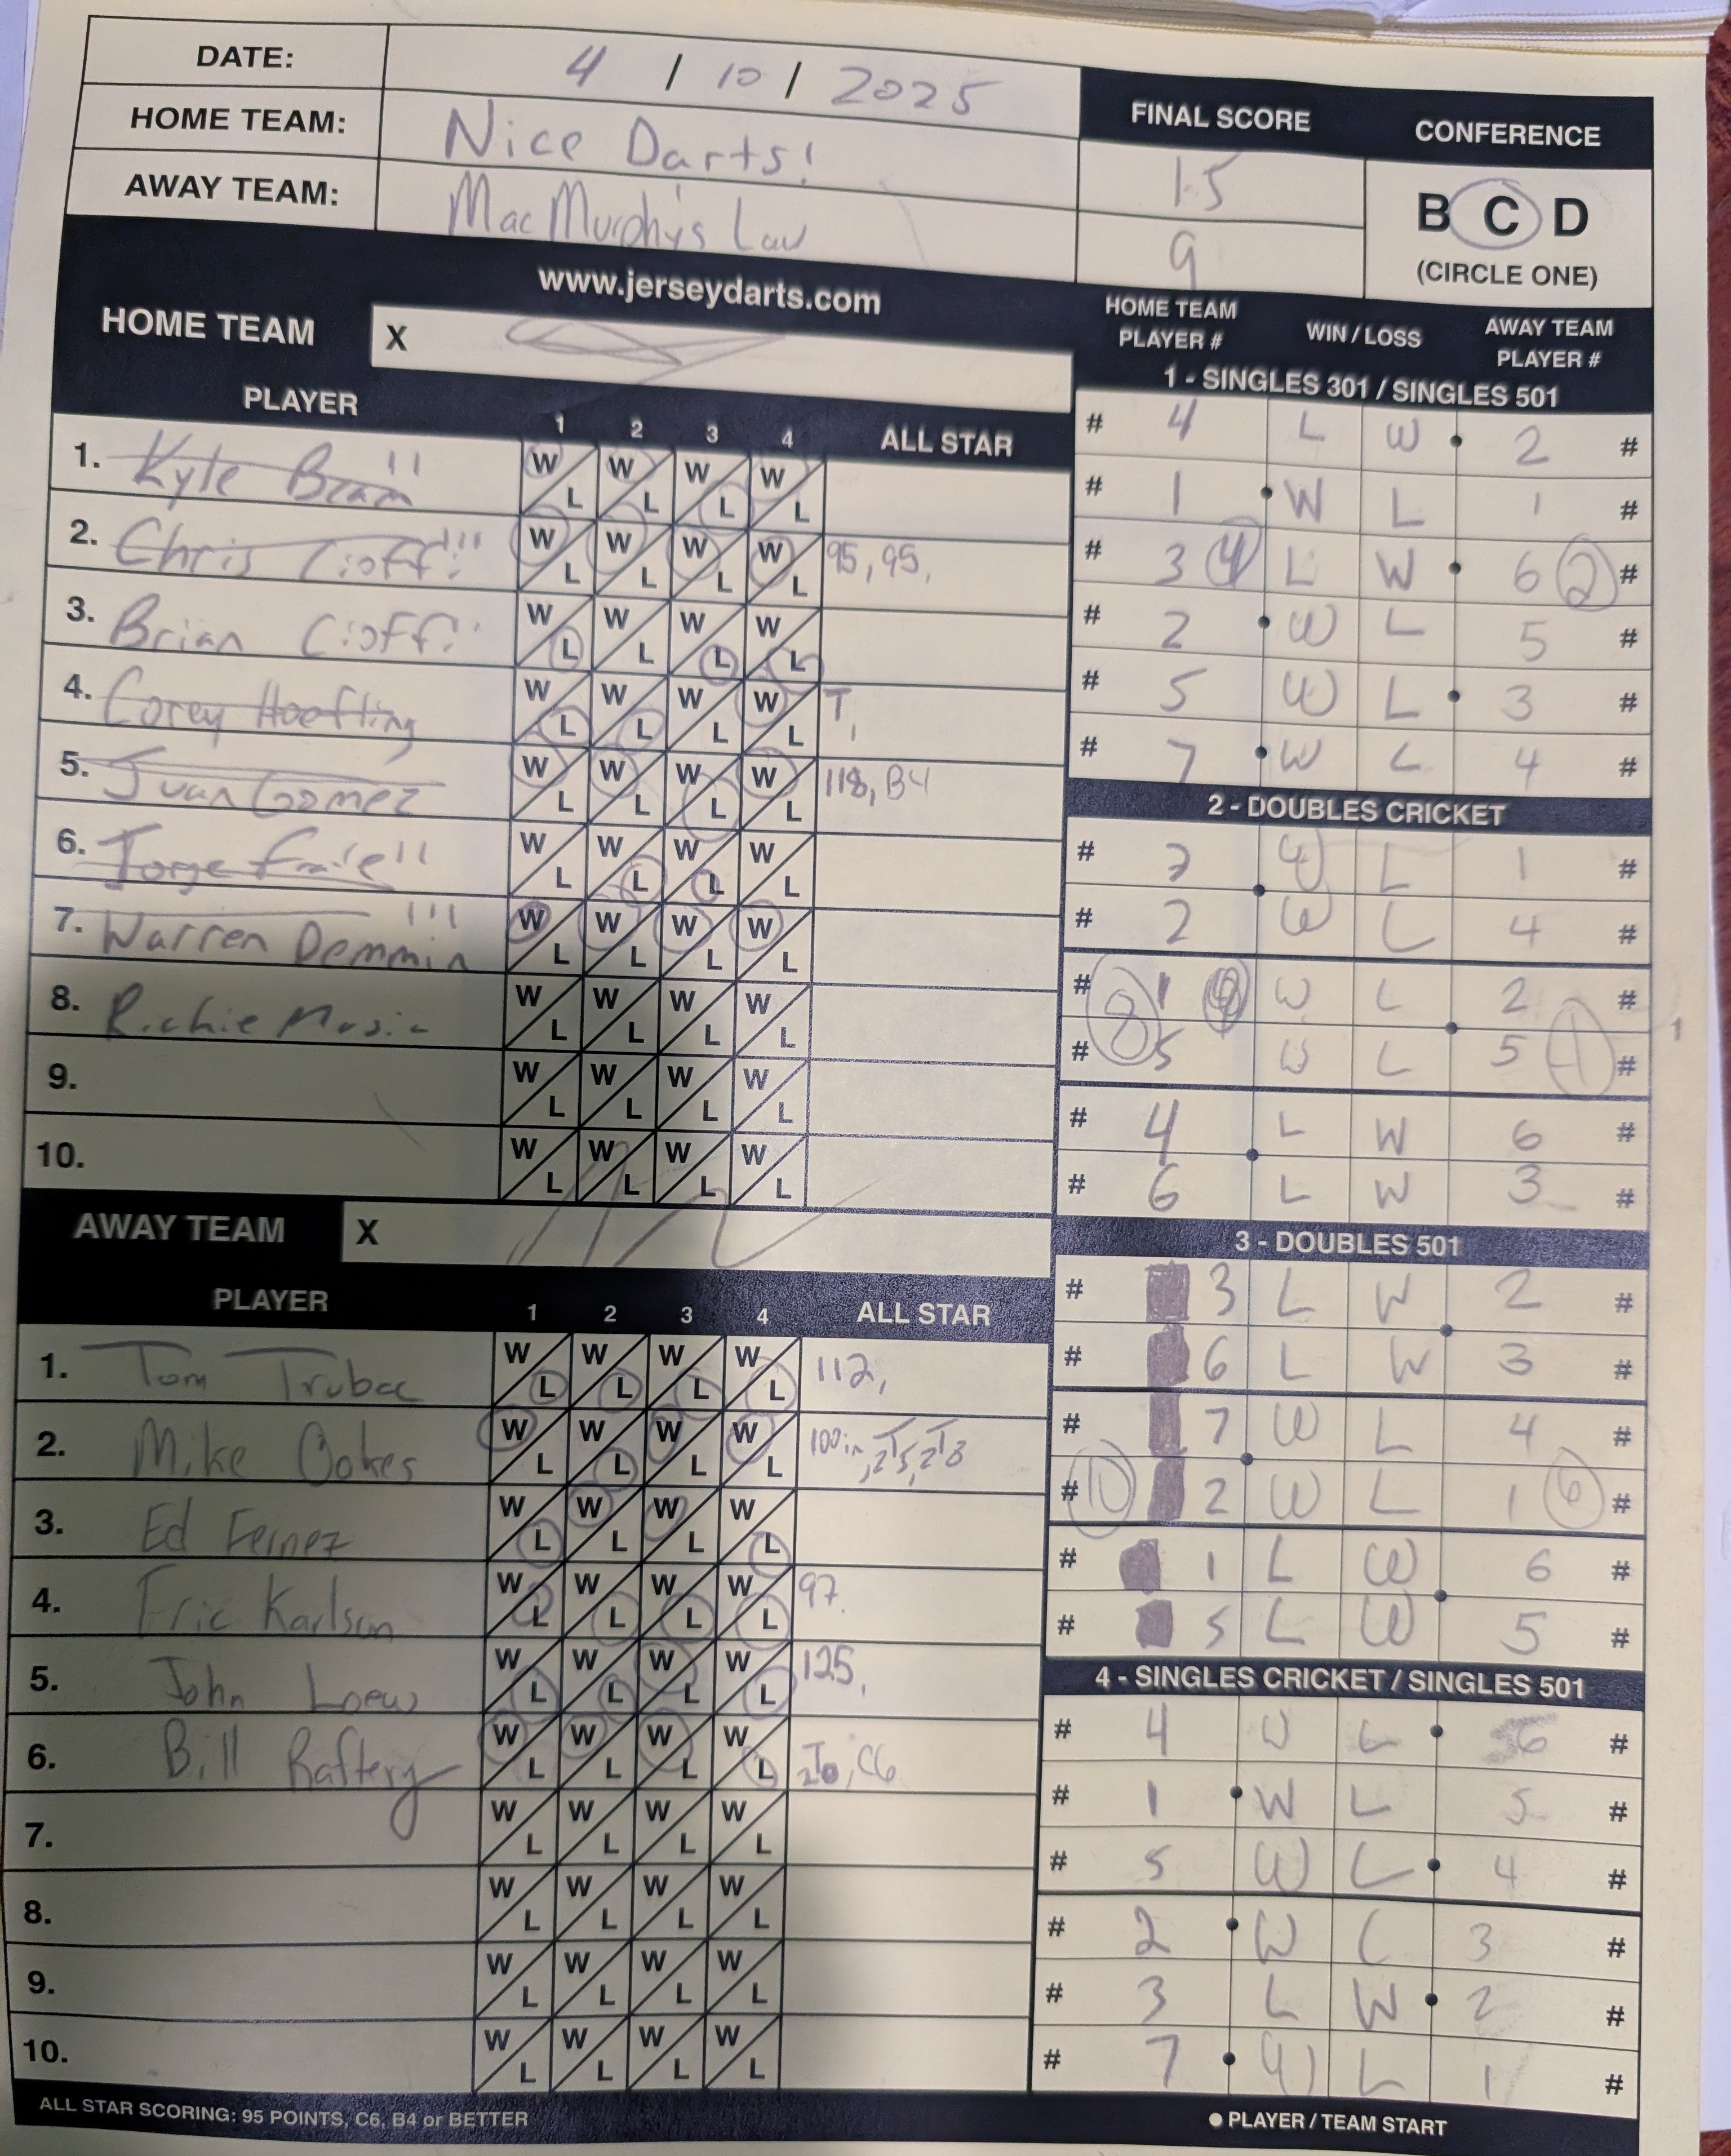 DATE: 4 / 10 / 2025
HOME TEAM: Nice Darts!
AWAY TEAM: MacMurphy's Law
FINAL SCORE
15
9
CONFERENCE
B C D
(CIRCLE ONE)
www.jerseydarts.com
HOME TEAM X
PLAYER 1 2 3 4 ALL STAR
1. Kyle Bram W L W L W L W L
2. Chris Cioffi W L W L W L W L 95, 95,
3. Brian Cioffi W L W L W L W L
4. Corey Hoefling W L W L W L W L T,
5. Juan Gomez W L W L W L W L 118, B4
6. Jorge W L W L W L W L
7. Warren Demmin W L W L W L W L
8. Richie W L W L W L W L
9. W L W L W L W L
10. W L W L W L W L
AWAY TEAM X
PLAYER 1 2 3 4 ALL STAR
1. Tom Trubac W L W L W L W L 112,
2. Mike Ookes W L W L W L W L 100in,
3. Ed Fernez W L W L W L W L
4. Eric Karlson W L W L W L W L 97.
5. John Loew W L W L W L W L 125,
6. Bill Raftery W L W L W L W L C6
7. W L W L W L W L
8. W L W L W L W L
9. W L W L W L W L
10. W L W L W L W L
ALL STAR SCORING: 95 POINTS, C6, B4 or BETTER
HOME TEAM PLAYER # WIN / LOSS AWAY TEAM PLAYER #
1 - SINGLES 301 / SINGLES 501
# 4 L W 2 #
# 1 W L 1 #
# 3 4 L W 6 2 #
# 2 W L 5 #
# 5 W L 3 #
# 7 W L 4 #
2 - DOUBLES CRICKET
# 7 W L 1 #
# 2 W L 4 #
# 1 W L 2 #
8 4
# 5 W L 5 #
# 4 L W 6 #
# 6 L W 3 #
3 - DOUBLES 501
# 3 L W 2 #
# 6 L W 3 #
# 7 W L 4 #
# 10 2 W L 1 6 #
# 1 L W 6 #
# 5 L W 5 #
4 - SINGLES CRICKET / SINGLES 501
# 4 W L 6 #
# 1 W L 5 #
# 5 W L 4 #
# 2 W L 3 #
# 3 L W 2 #
# 7 W L 1 #
PLAYER / TEAM START